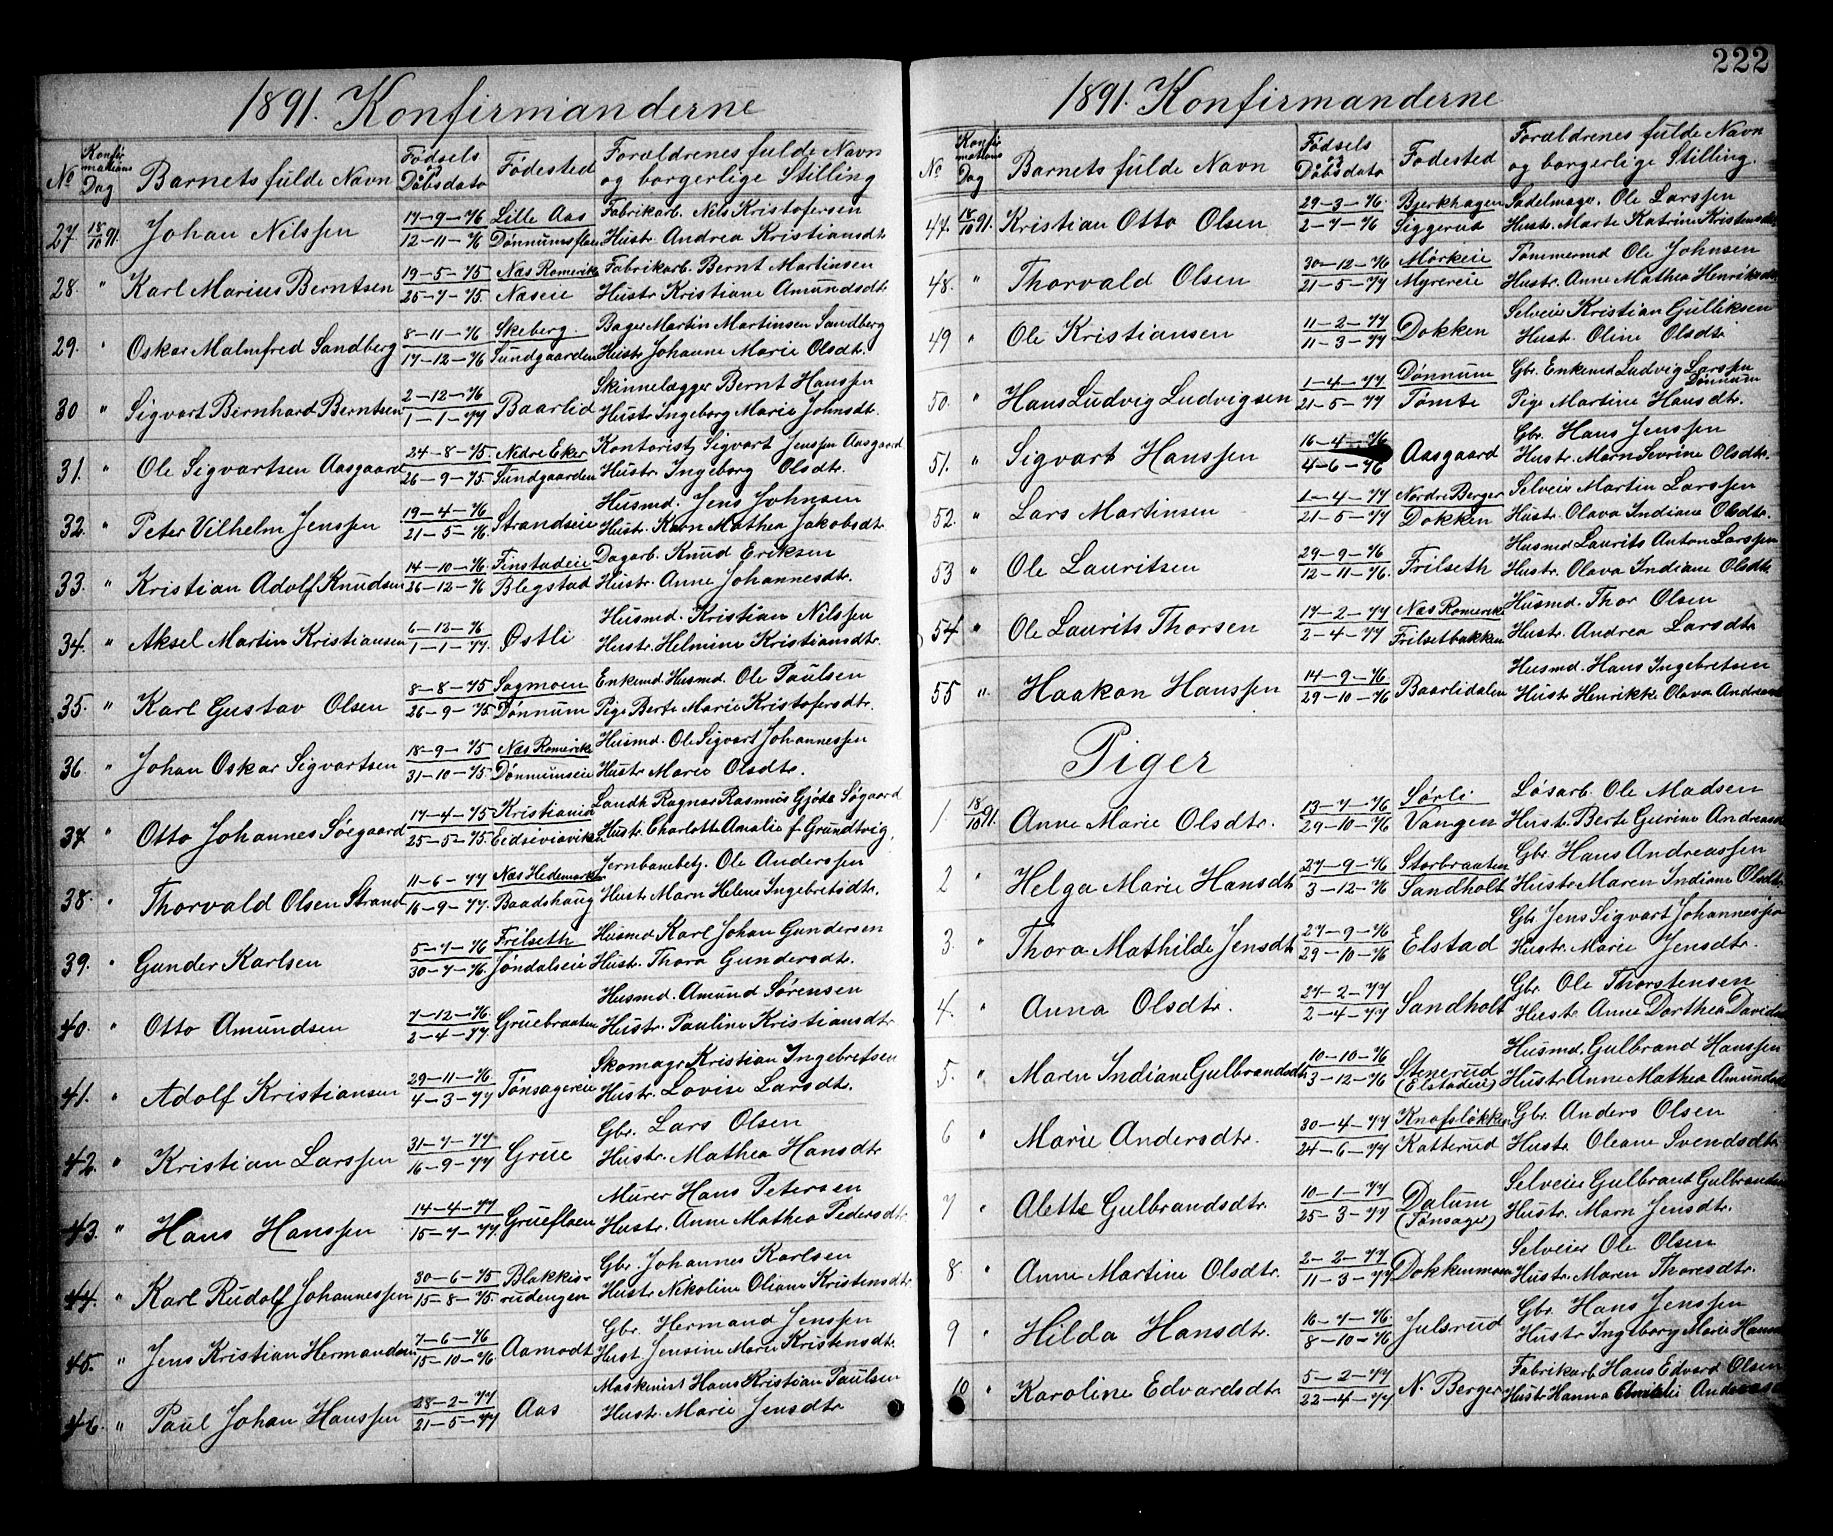 1891. Konfirmanderne
No
Konfirmations Dag
Barnets fulde Navn
Fødsels og Døbsdato
Fødested
Forældrenes fulde Navn
og borgerlige Stilling
27. 18/10 91. Johan Nilssen 17-9-76 Lille Aas Fabrikarb. Nils Kristofersen
12-11-76 Dønnumsfloen Hustr. Andrea Kristiansdtr.
28. " Karl Marius Berntsen 19-5-75 Næs Romerike Fabrikarb. Bernt Martinsen
25-7-75 Næseie Hustr. Kristiane Amundsdtr.
29. " Oskar Malmfred Sandberg 8-11-76 Skeberg. Bager Martin Martinsen Sandberg
17-12-76 Sundgaarden Hustr. Johanne Marie Olsdtr.
30 " Sigvart Bernhard Berntsen 2-12-76 Baarlid Skinnelægger Bernt Hanssen
1-1-77 Hustr. Ingeborg Marie Johnsdtr.
31. " Ole Sigvartsen Aasgaard 24-8-75 Nedre Eker Kontorist Sigvart Jenssen Aasgaard
26-9-75 Sundgaarden Hustr. Ingeborg Olsdtr.
32. " Peter Vilhelm Jenssen 19-4-76 Strandseie Husmd. Jens Johnsen
21-5-76 Hustr. Karn Mathea Jakobsdtr
33. " Kristian Adolf Knudsen 14-10-76 Finstadeie Dagarb. Knud Eriksen
26-12-76 Blegstad Hustr. Anne Johannesdtr.
34. " Aksel Martin Kristiansen 6-12-76 Østli Husmd. Kristian Nilssen
1-1-77. Hustr. Helmine Kristiansdtr.
35. " Karl Gustav Olsen 8-8-75 Sagmoen Enkemd. Husmd. Ole Paulsen
26-9-75 Dønnum Pige Berte Marie Kristofersdtr.
36. " Johan Oskar Sigvartsen 18-9-75 Næs Romerike Husmd. Ole Sigvart Johannessen
31-10-75. Dønnumseie Hustr. Marie Olsdtr.
37 " Otto Johannes Søegaard 17-4-75 Kristiania Landh. Ragnar Rasmus Gjøde Søgaard
25-5-75. Hustr. Charlotte Amalie f. Grundtvig.
38. " Thorvald Olsen Strand 11-6-77 Næs Hedemarken Jernbanebetj. Ole Anderssen
16-9-77. Baadshaug Hustr. Marn Helene Ingebretsdtr.
39. " Gunder Karlsen 5-7-76 Frilseth Husmd. Karl Johan Gundersen
30-7-76. Jøndalseie Hustr. Thora Gundersdtr.
40. " Otto Amundsen 7-12-76 Gruebraaten Husmd. Amund Sørensen
2-4-77 Hustr. Pauline Kristiansdtr
41. " Adolf Kristiansen 29-11-76 Tønsagereie Skomagr. Kristian Ingebretsen
4-3-77 Hustr. Lovise Larsdtr.
42. " Kristian Larssen 31-7-77 Grue Gbr. Lars Olsen
16-9-77 Hustr. Mathea Hansdtr.
43. " Hans Hanssen 14-4-77 Gruefloen Murer Hans Petersen
15-7-77. Hustr. Anne Mathea Pedersdtr.
44. " Karl Rudolf Johannessen 30-6-75 Blakkis- Gbr. Johannes Karlsen
15-8-75. rudengen Hustr. Nikoline Oliane Kristensdtr
45. " Jens Kristian Hermandsen 7-6-76 Aamodt Gbr. Hermand Jenssen
15-10-76. Hust. Jensine Marie Kristensdtr.
46. " Paul Johan Hanssen 28-2-77 Aas Maskinist Hans Kristian Paulsen
21-5-77 Hustr. Marie Jensdtr
222
1891. Konfirmanderne
No
Konfirmations Dag
Barnets fulde Navn
Fødsels og Døbsdato
Fødested
Forældrenes fulde Navn
og borgerlige Stilling.
47. 18/10 91. Kristian Otto Olsen 29-3-76 Bjerkhagen Sadelmagr. Ole Larssen
2-7-76 Siggerud Hustr. Marte Katrine Kristensdtr
48. " Thorvald Olsen 30-12-76 Mörkeie Tømmermd Ole Johnsen
21-5-77 Myrereie Hustr. Anne Mathea Henriksdtr
49 " Ole Kristiansen 11-2-77 Dokken Selveier Kristian Gulliksen
11-3-77 Hust. Oline Olsdtr
50. " Hans Ludvig Ludvigsen 1-4-77 Dønnum Gbr. Enkemd Ludvig Larssen Dønnum
21-5-77 Tømte Pige Martine Hansdtr.
51. " Sigvart Hanssen 16-4-76 Aasgaard Gbr. Hans Jenssen
4-6-76 Hustr. Marn Sevrine Olsdtr.
52. " Lars Martinsen 1-4-77 Nordre Berger Selveier Martin Larssen
21-5-77 Dokken Hustr. Olava Indiane Olsdtr.
53 " Ole Lauritsen 29-9-76 Frilseth Husmd Laurits Anton Larssen
12-11-76. Hustr. Olava Indiane Olsdtr.
54 " Ole Laurits Thorsen 17-2-77 Næs Romerike Husmd. Thor Olsen
2-4-77 Frilsetbakken Hustr. Andrea Larsdtr
55 " Haakon Hanssen 14-9-76 Baarlidalen Husmd. Hans Ingebretsen
29-10-76 Hustr Henrikke Olava
Piger
1 18/10 91. Anne Marie Olsdtr. 13-7-76 Sørli Løsarb. Ole Madsen
29-10-76 Vangen Hustr. Berte Gurine
2 " Helga Marie Hansdtr 27-9-76 Storbraaten Gbr. Hans Andreassen
3-12-76 Sandholt Hustr Maren Indiane Olsdtr
3. " Thora Mathilde Jensdtr 27-9-76 Elstad Gbr. Jens Sigvart Johannessen
29-10-76 Hustr. Marie Jensdtr.
4. " Anna Olsdtr. 24-2-77 Sandholt Gbr. Ole Thorstensen
2-4-77 Hustr. Anne Dorthea
5. " Maren Indiane Gulbrandsdtr 10-10-76 Stenerud Husmd. Gulbrand Hanssen
3-12-76 (Elstadeie) Hustr Anne Mathea Amundsdtr
6 " Marie Andersdtr. 30-4-77 Knofsløkken Gbr. Anders Olsen
24-6-77 Katterud Hustr. Oleane Svendsdtr.
7 " Alette Gulbrandsdtr. 10-1-77 Dalum Selveier Gulbrand Gulbrandsen
25-3-77 (Tønsager) Hustr. Marn Jensdtr.
8. " Anne Martine Olsdtr. 2-2-77 Dokkenmoen Selveier Ole Olsen
11-3-77 Hustr. Maren Thoresdtr.
9 " Hilda Hansdtr. 16-7-76. Julsrud Gbr. Hans Jenssen
8-10-76 Hustr Ingeborg Marie
10 " Karoline Edvardsdtr. 5-2-77 N. Berger Fabrikarb Hans Edvard Olsen
22-4-77 Hustr Hanna